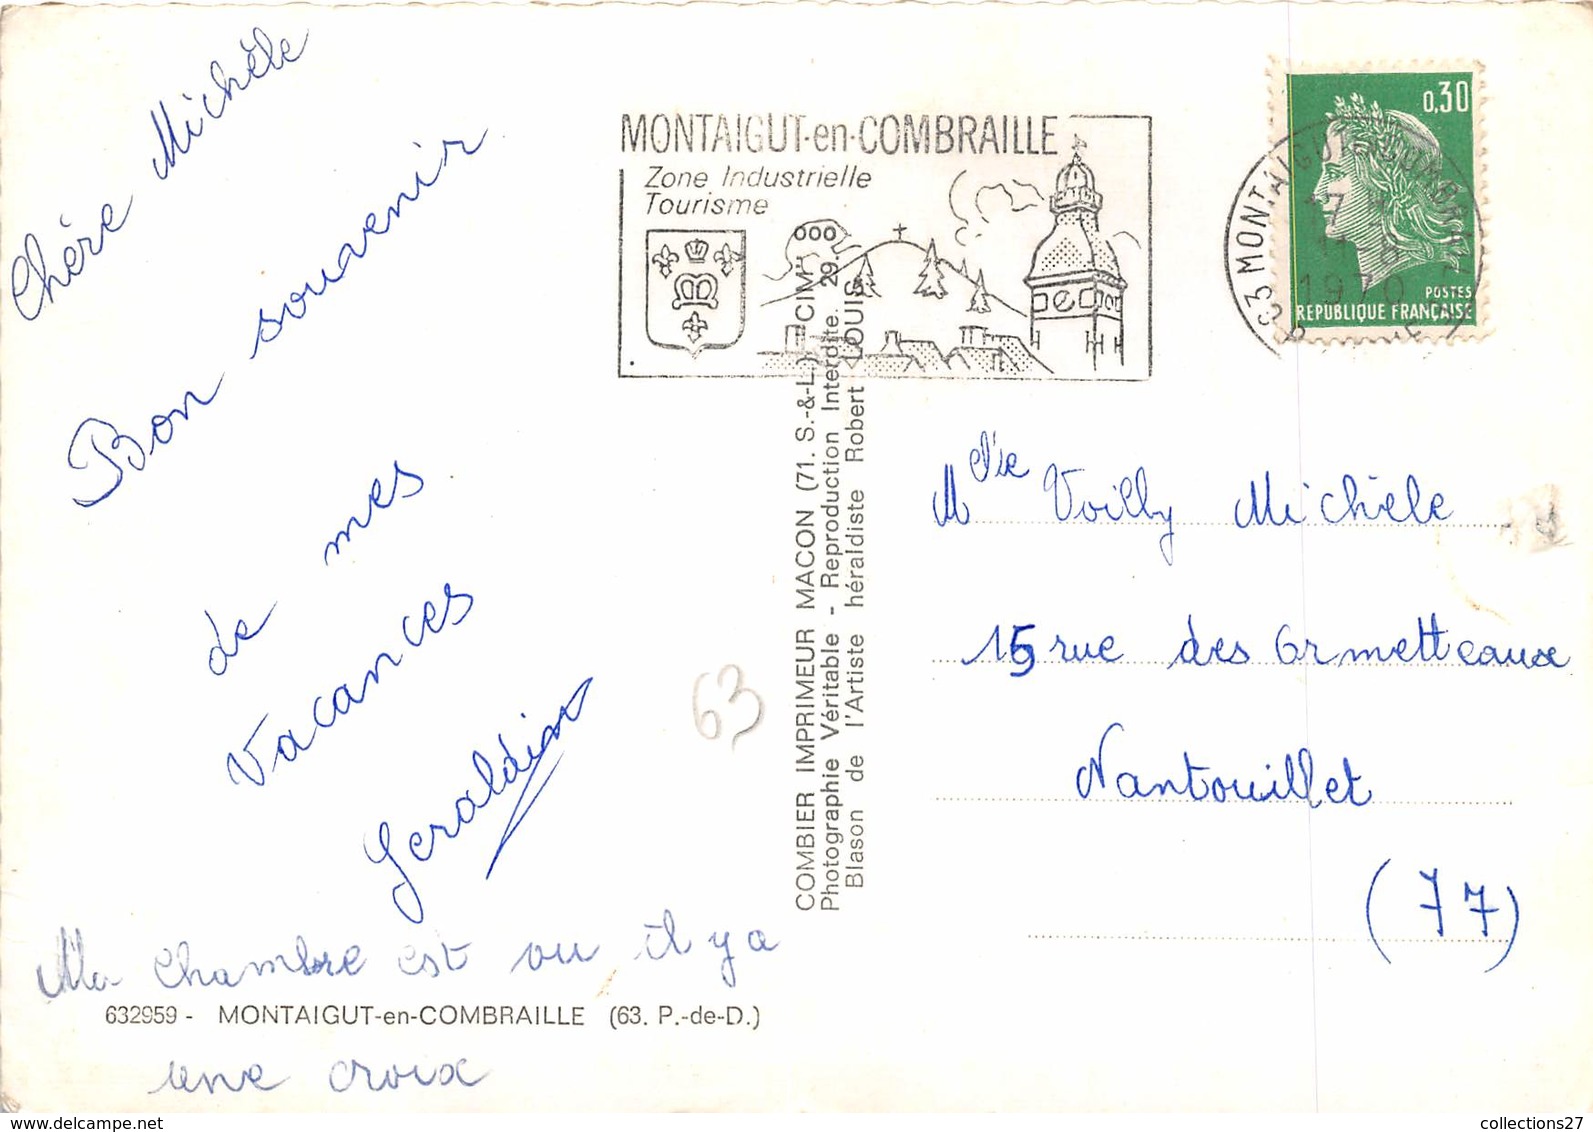 Chère Michèle
Bon souvenir
de mes
vacances
Geraldine
Ma chambre est ou il y a
632959 - MONTAIGUT-en-COMBRAILLE (63. P.-de-D.)
une croix
63
COMBIER IMPRIMEUR MACON (71. S.-&-L.) "CIM"
Photographie Véritable - Reproduction Interdite. 29.
Blason de l'Artiste héraldiste Robert LOUIS
MONTAIGUT-en-COMBRAILLE
Zone Industrielle
Tourisme
0,30
POSTES
REPUBLIQUE FRANÇAISE
63 MONTAIGUT-COMBRAILLE
17
11 8
1970
Mlle Voilly Michèle
15 rue des Ormetteaux
Nantouillet
(77)
collections27